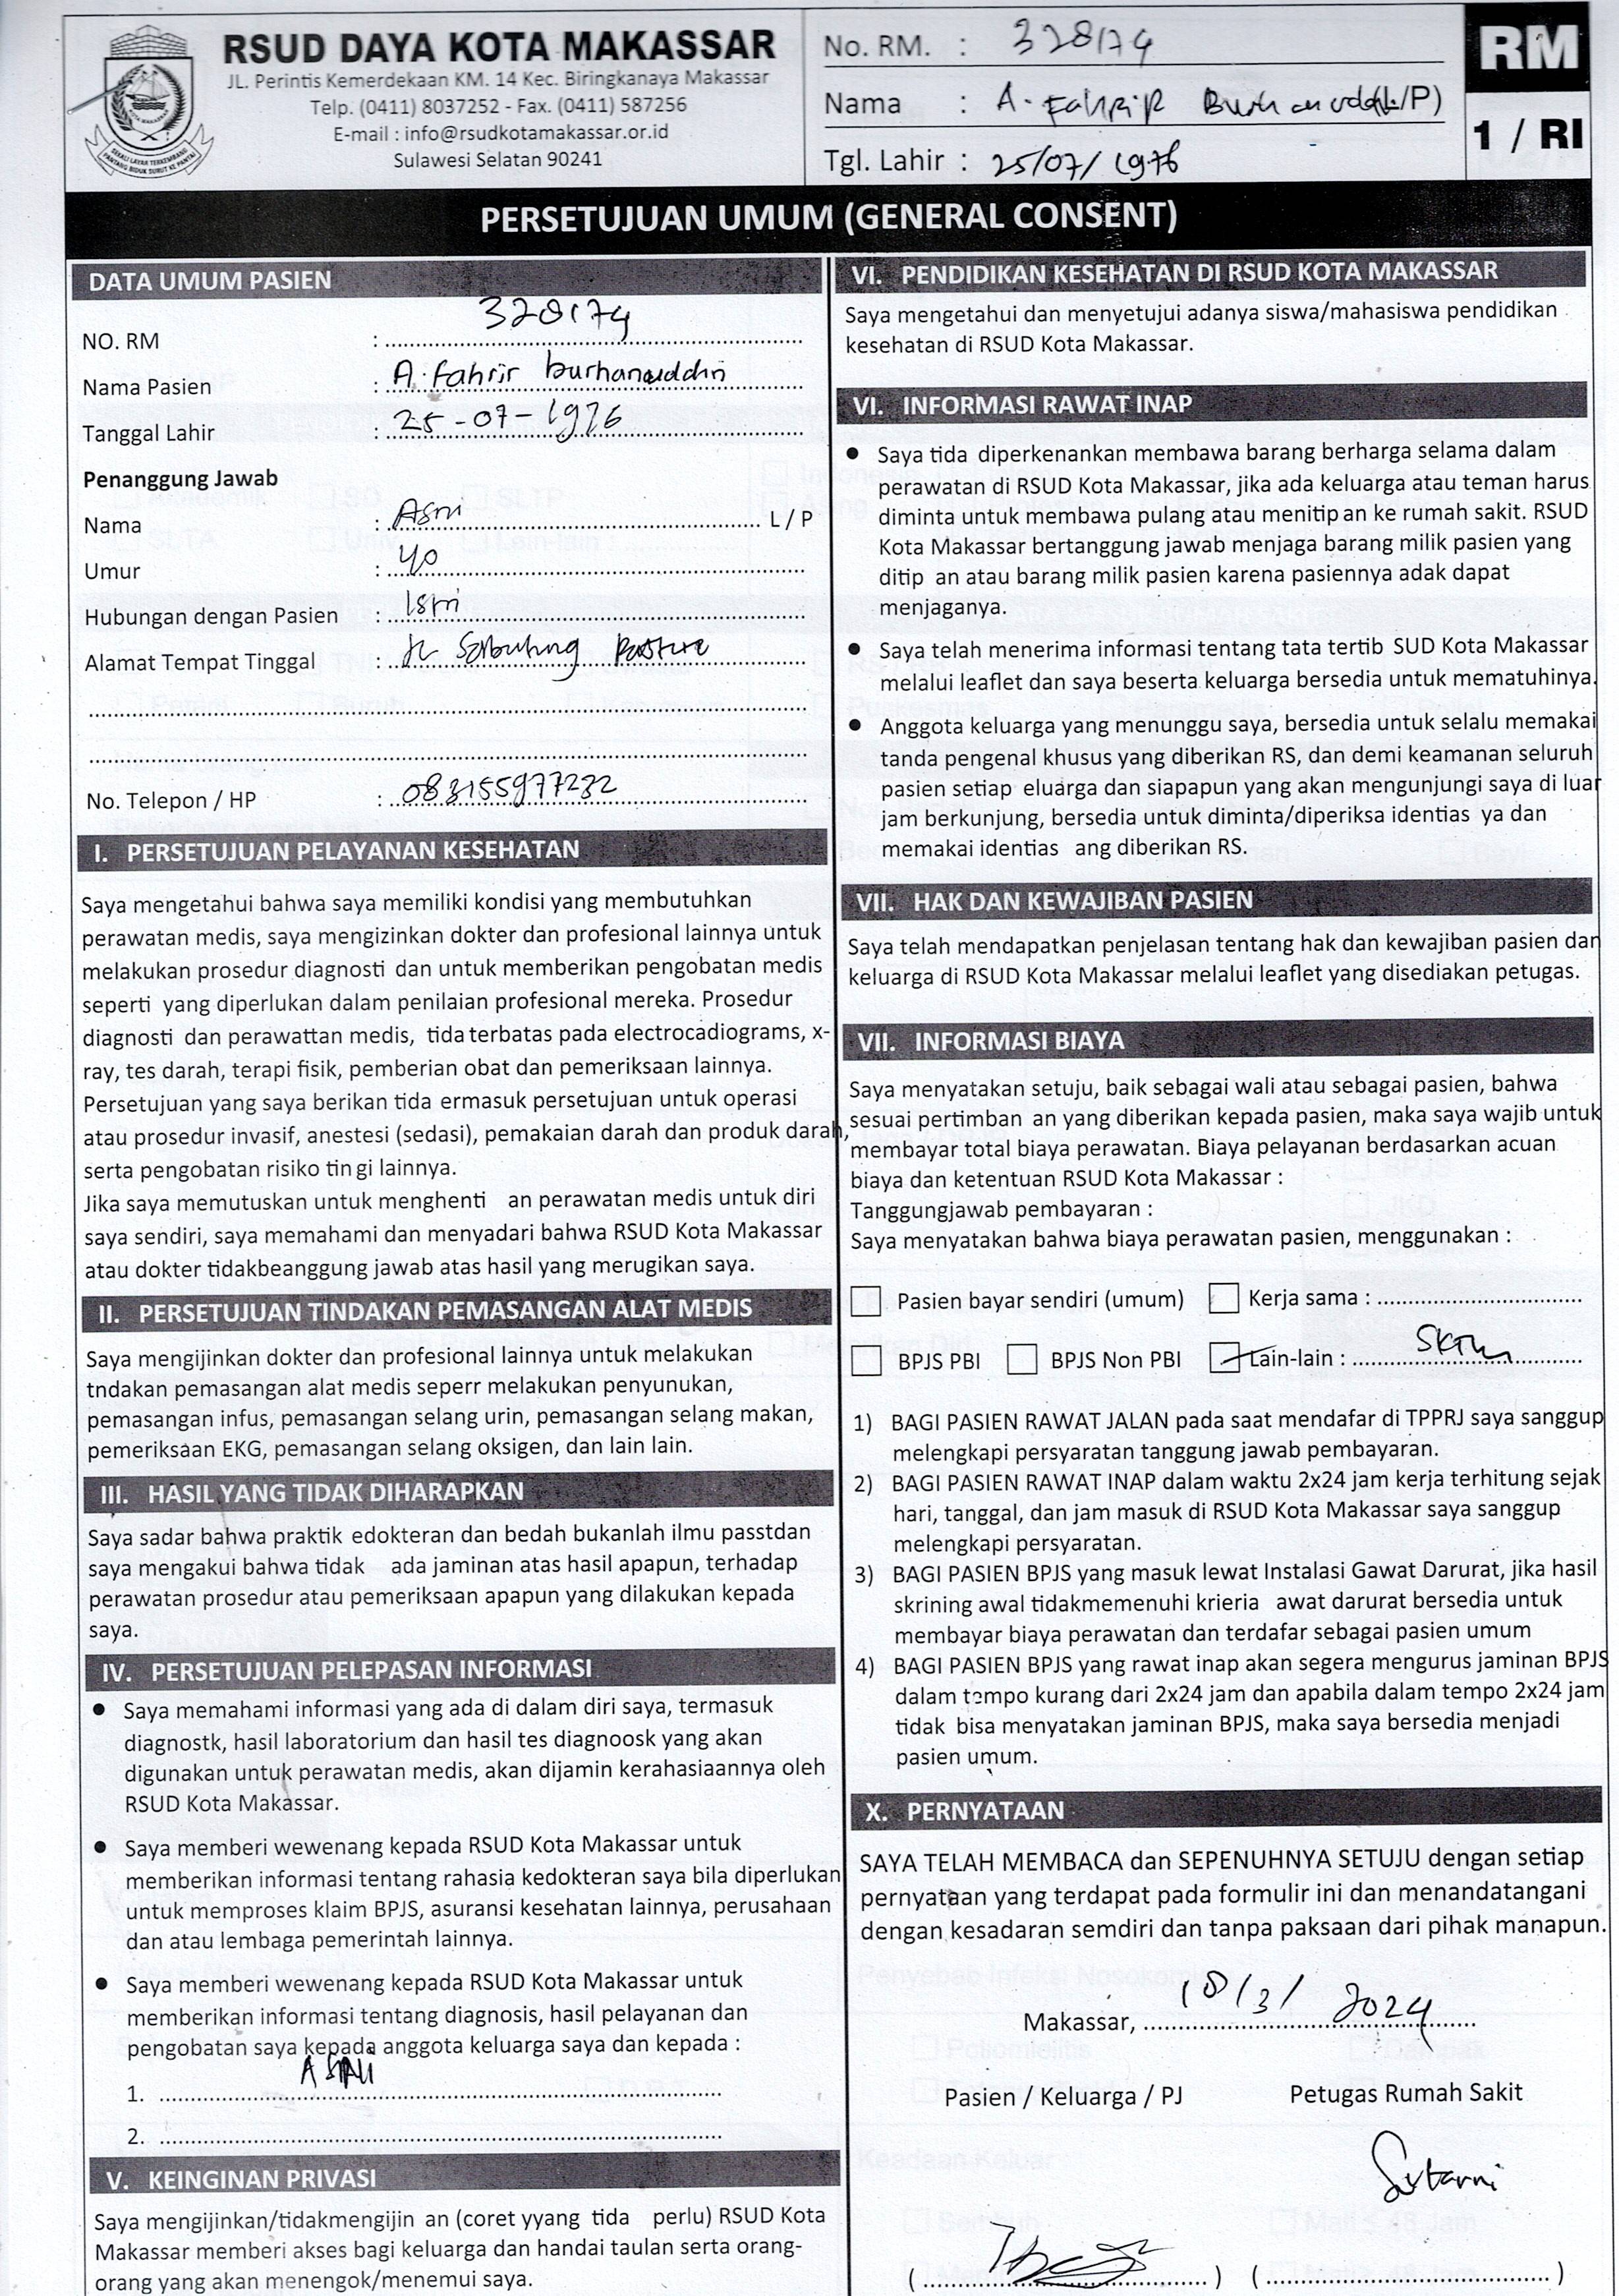 RSUD DAYA KOTA MAKASSAR
JL. Perintis Kemerdekaan KM. 14 Kec. Biringkanaya Makassar
Telp. (0411) 8037252 - Fax. (0411) 587256
E-mail : info@rsudkotamakassar.or.id
Sulawesi Selatan 90241
No. RM. : 328174
Nama : A. Fahrir Burhanuddin (L/P)
Tgl. Lahir : 25/07/1976
RM
1 / RI
PERSETUJUAN UMUM (GENERAL CONSENT)
DATA UMUM PASIEN
NO. RM : 328174
Nama Pasien : A. fahrir burhanuddin
Tanggal Lahir : 25-07-1976
Penanggung Jawab
Nama : Asni L / P
Umur : 40
Hubungan dengan Pasien : Istri
Alamat Tempat Tinggal :
No. Telepon / HP : 083155977232
I. PERSETUJUAN PELAYANAN KESEHATAN
Saya mengetahui bahwa saya memiliki kondisi yang membutuhkan
perawatan medis, saya mengizinkan dokter dan profesional lainnya untuk
melakukan prosedur diagnosti dan untuk memberikan pengobatan medis
seperti yang diperlukan dalam penilaian profesional mereka. Prosedur
diagnosti dan perawattan medis, tida terbatas pada electrocadiograms, x-
ray, tes darah, terapi fisik, pemberian obat dan pemeriksaan lainnya.
Persetujuan yang saya berikan tida ermasuk persetujuan untuk operasi
atau prosedur invasif, anestesi (sedasi), pemakaian darah dan produk darah,
serta pengobatan risiko tin gi lainnya.
Jika saya memutuskan untuk menghenti an perawatan medis untuk diri
saya sendiri, saya memahami dan menyadari bahwa RSUD Kota Makassar
atau dokter tidakbeanggung jawab atas hasil yang merugikan saya.
II. PERSETUJUAN TINDAKAN PEMASANGAN ALAT MEDIS
Saya mengijinkan dokter dan profesional lainnya untuk melakukan
tndakan pemasangan alat medis seperr melakukan penyunukan,
pemasangan infus, pemasangan selang urin, pemasangan selang makan,
pemeriksaan EKG, pemasangan selang oksigen, dan lain lain.
III. HASIL YANG TIDAK DIHARAPKAN
Saya sadar bahwa praktik edokteran dan bedah bukanlah ilmu passtdan
saya mengakui bahwa tidak ada jaminan atas hasil apapun, terhadap
perawatan prosedur atau pemeriksaan apapun yang dilakukan kepada
saya.
IV. PERSETUJUAN PELEPASAN INFORMASI
● Saya memahami informasi yang ada di dalam diri saya, termasuk
diagnostk, hasil laboratorium dan hasil tes diagnoosk yang akan
digunakan untuk perawatan medis, akan dijamin kerahasiaannya oleh
RSUD Kota Makassar.
● Saya memberi wewenang kepada RSUD Kota Makassar untuk
memberikan informasi tentang rahasia kedokteran saya bila diperlukan
untuk memproses klaim BPJS, asuransi kesehatan lainnya, perusahaan
dan atau lembaga pemerintah lainnya.
● Saya memberi wewenang kepada RSUD Kota Makassar untuk
memberikan informasi tentang diagnosis, hasil pelayanan dan
pengobatan saya kepada anggota keluarga saya dan kepada :
1.
2.
V. KEINGINAN PRIVASI
Saya mengijinkan/tidakmengijin an (coret yyang tida perlu) RSUD Kota
Makassar memberi akses bagi keluarga dan handai taulan serta orang-
orang yang akan menengok/menemui saya.
VI. PENDIDIKAN KESEHATAN DI RSUD KOTA MAKASSAR
Saya mengetahui dan menyetujui adanya siswa/mahasiswa pendidikan
kesehatan di RSUD Kota Makassar.
VI. INFORMASI RAWAT INAP
● Saya tida diperkenankan membawa barang berharga selama dalam
perawatan di RSUD Kota Makassar, jika ada keluarga atau teman harus
diminta untuk membawa pulang atau menitip an ke rumah sakit. RSUD
Kota Makassar bertanggung jawab menjaga barang milik pasien yang
ditip an atau barang milik pasien karena pasiennya adak dapat
menjaganya.
● Saya telah menerima informasi tentang tata tertib SUD Kota Makassar
melalui leaflet dan saya beserta keluarga bersedia untuk mematuhinya.
● Anggota keluarga yang menunggu saya, bersedia untuk selalu memakai
tanda pengenal khusus yang diberikan RS, dan demi keamanan seluruh
pasien setiap eluarga dan siapapun yang akan mengunjungi saya di luar
jam berkunjung, bersedia untuk diminta/diperiksa identias ya dan
memakai identias ang diberikan RS.
VII. HAK DAN KEWAJIBAN PASIEN
Saya telah mendapatkan penjelasan tentang hak dan kewajiban pasien dan
keluarga di RSUD Kota Makassar melalui leaflet yang disediakan petugas.
VII. INFORMASI BIAYA
Saya menyatakan setuju, baik sebagai wali atau sebagai pasien, bahwa
sesuai pertimban an yang diberikan kepada pasien, maka saya wajib untuk
membayar total biaya perawatan. Biaya pelayanan berdasarkan acuan
biaya dan ketentuan RSUD Kota Makassar :
Tanggungjawab pembayaran :
Saya menyatakan bahwa biaya perawatan pasien, menggunakan :
Pasien bayar sendiri (umum) Kerja sama :
BPJS PBI BPJS Non PBI Lain-lain : SKTM
1) BAGI PASIEN RAWAT JALAN pada saat mendafar di TPPRJ saya sanggup
melengkapi persyaratan tanggung jawab pembayaran.
2) BAGI PASIEN RAWAT INAP dalam waktu 2x24 jam kerja terhitung sejak
hari, tanggal, dan jam masuk di RSUD Kota Makassar saya sanggup
melengkapi persyaratan.
3) BAGI PASIEN BPJS yang masuk lewat Instalasi Gawat Darurat, jika hasil
skrining awal tidakmemenuhi krieria awat darurat bersedia untuk
membayar biaya perawatan dan terdafar sebagai pasien umum
4) BAGI PASIEN BPJS yang rawat inap akan segera mengurus jaminan BPJS
dalam tempo kurang dari 2x24 jam dan apabila dalam tempo 2x24 jam
tidak bisa menyatakan jaminan BPJS, maka saya bersedia menjadi
pasien umum.
X. PERNYATAAN
SAYA TELAH MEMBACA dan SEPENUHNYA SETUJU dengan setiap
pernyataan yang terdapat pada formulir ini dan menandatangani
dengan kesadaran semdiri dan tanpa paksaan dari pihak manapun.
Makassar, 18/3/2024
Pasien / Keluarga / PJ Petugas Rumah Sakit
Sutarni